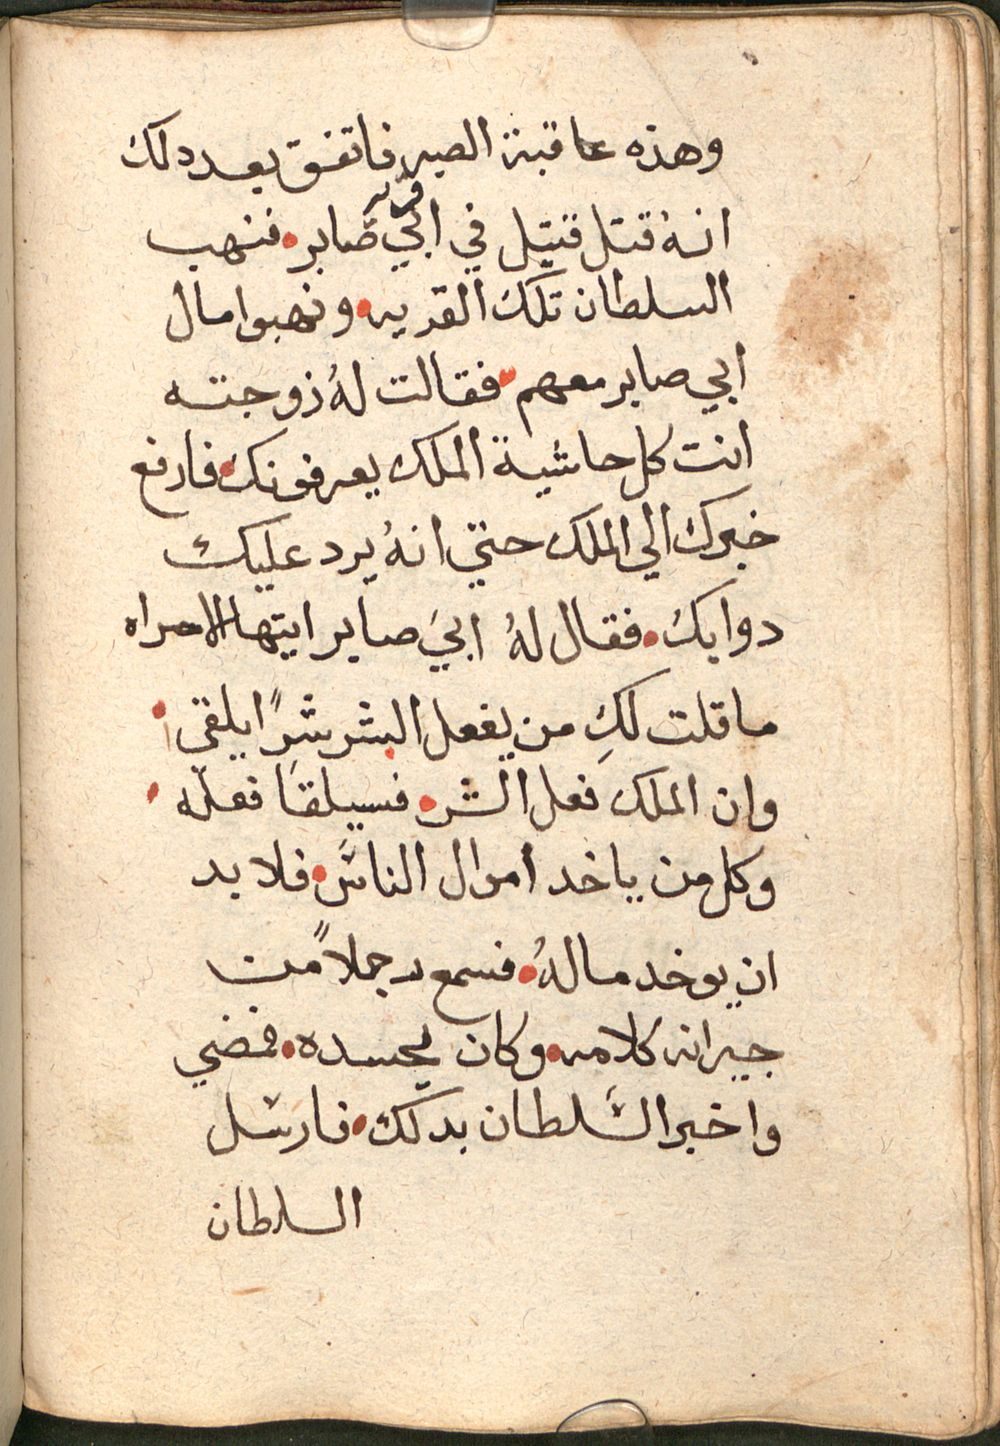 وهذه عاقبة الصبر فاتفق بعد دلك
انهُ قتل قتيل في قرية ابي صابر • فنهب
السلطان تلك القريه • ونهبوا مال
ابي صابر معهم • فقالت لهُ زوجته
انت كل حاشية الملك يعرفونك • فارفع
خبرك الي الملك حتي انهُ يرد عليك
دوابك • فقال لهُ ابي صابر ايتها الامراه
ما قلت لكِ من يفعل الشر شرًا يلقي •
وان الملك فعل الشر • فسيلقا فعله •
وكل من ياخد اموال الناس • فلا بد
ان يوخد مالهُ • فسمع رجلاً من
جيرانه كلامه • وكان يحسده • فمضي
واخبر السلطان بدلك • فارسل
السلطان